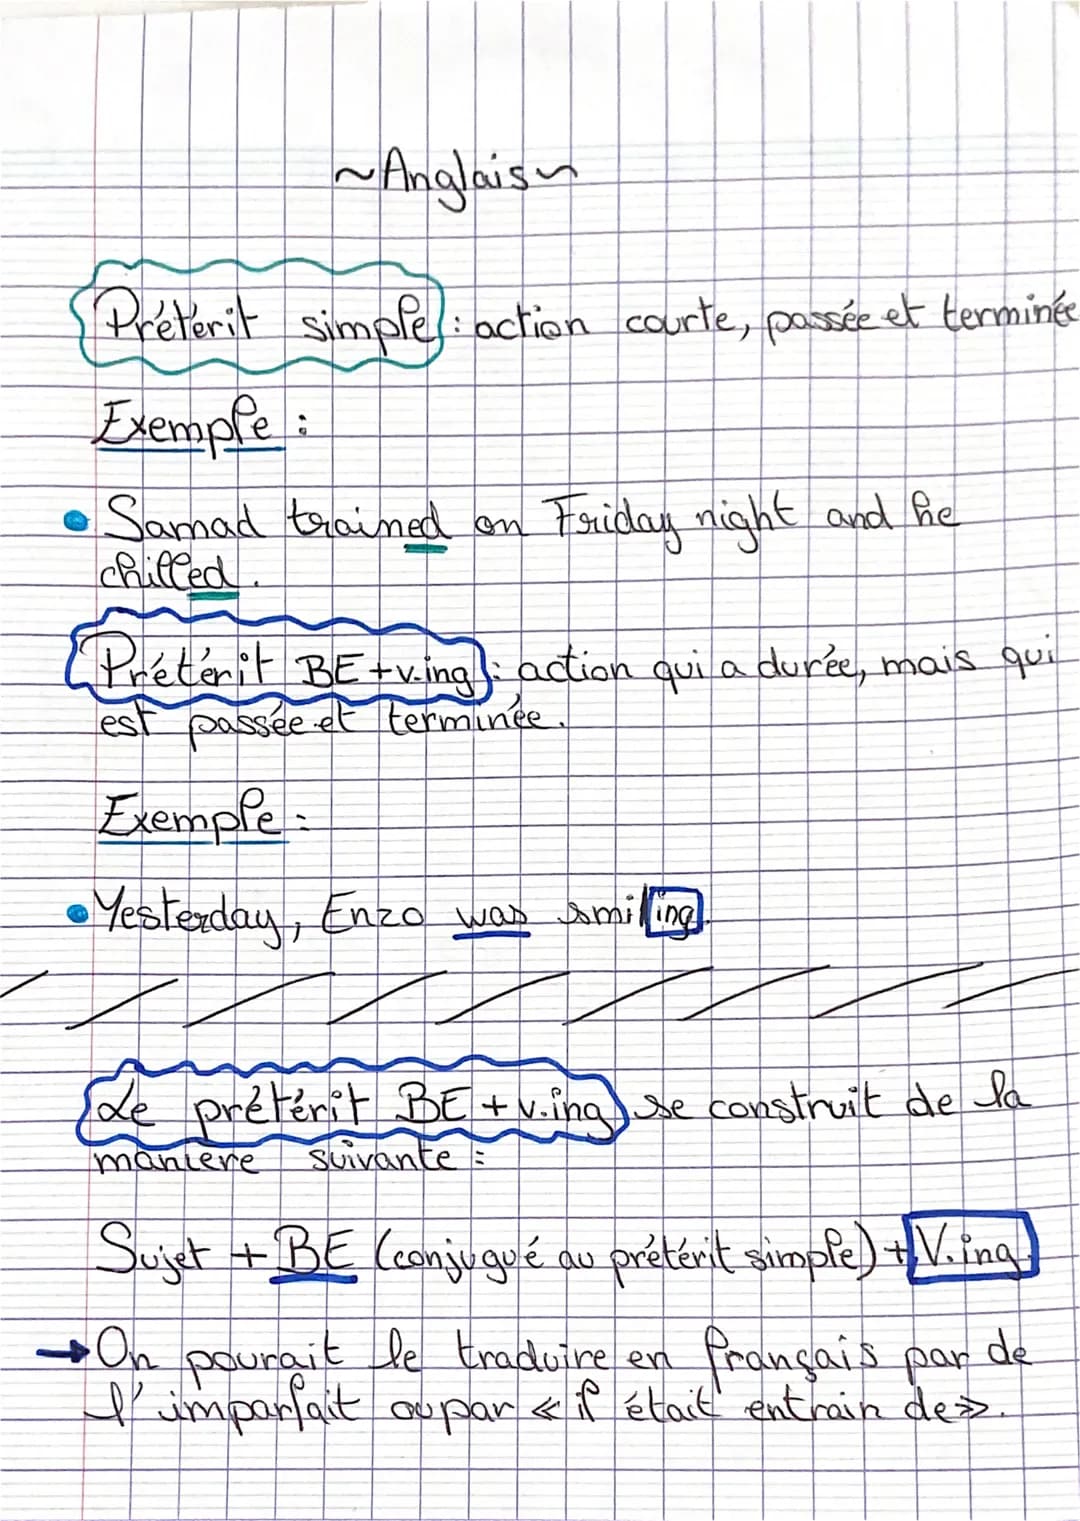 ~Anglais~
Prétérit simple : action courte, passée et terminée
Exemple :
• Samad trained on Friday night and he
chilled.
Prétérit BE+v.ing : action qui a durée, mais qui
est passée et terminée.
Exemple :
• Yesterday, Enzo was smiling.
Le prétérit BE + v.ing se construit de la
manière suivante :
Sujet + BE (conjugué au prétérit simple) + V.ing
→ On pourait le traduire en français par de
l'imparfait ou par « il était entrain de ».